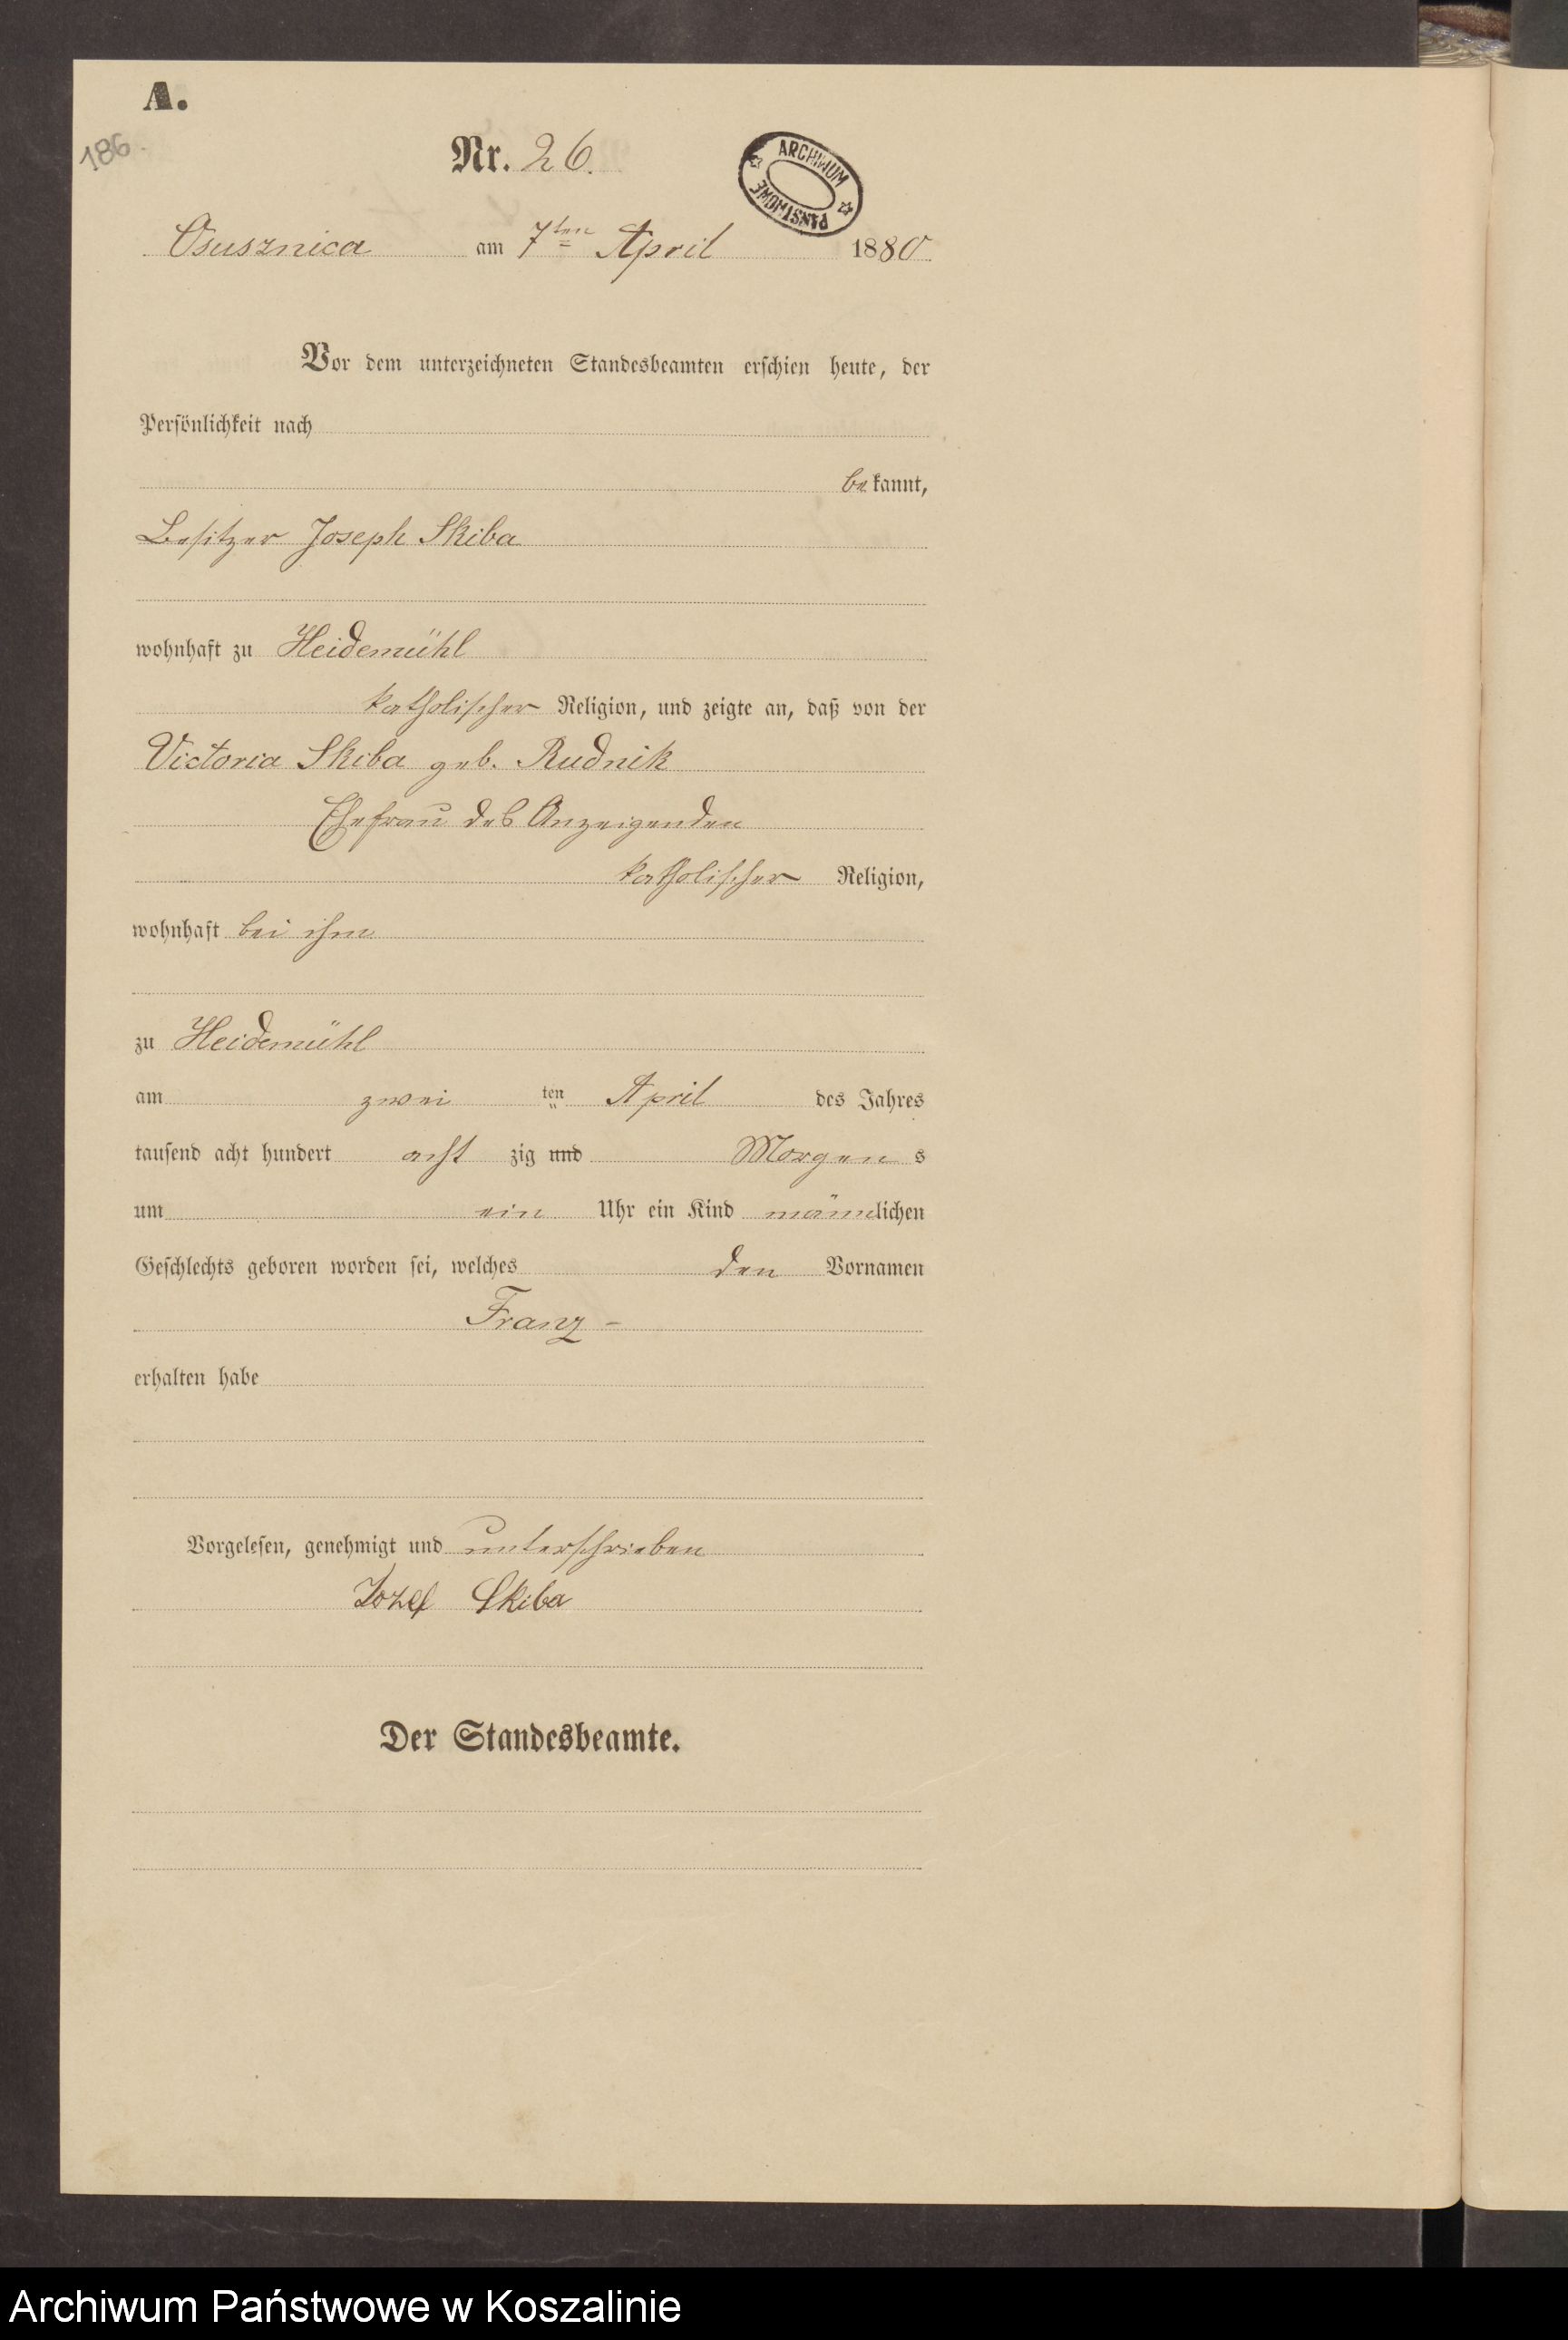 A.
186.
Nr. 26.
ARCHIWUM PAŃSTWOWE
Osusznica am 7ten April 1880.
Vor dem unterzeichneten Standesbeamten erschien heute, der
Persönlichkeit nach
bekannt,
Besitzer Joseph Skiba
wohnhaft zu Heidemühl
katholischer Religion, und zeigte an, daß von der
Victoria Skiba geb. Rudnik
Ehefrau des Anzeigenden
katholischer Religion,
wohnhaft bei ihm
zu Heidemühl
am zwei ten April des Jahres
tausend acht hundert acht zig und Morgens
um ein Uhr ein Kind männlichen
Geschlechts geboren worden sei, welches den Vornamen
Franz -
erhalten habe
Vorgelesen, genehmigt und unterschrieben
Jozef Skiba
Der Standesbeamte.
Archiwum Państwowe w Koszalinie